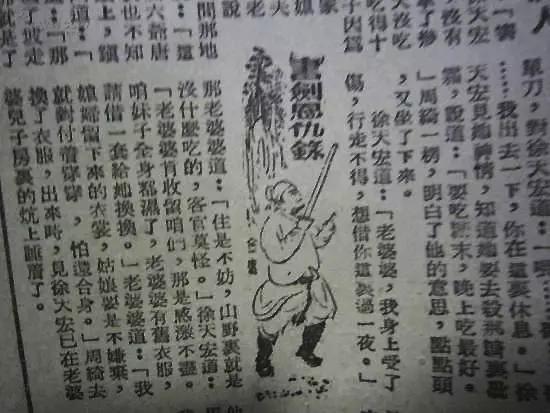 人
徐天宏
，沒有
吃得十
子因為
家
媳
老
說
單刀，對徐天宏道：「
……我出去一下，你在這裏休息。」徐
天宏見她神情，知道她要去殺
霜，說道：「要吃糖末，晚上吃最好。
」周綺一楞，明白了他的意思，點點頭
，又坐了下來。
徐天宏道：「老婆婆，我身上受了
傷，行走不得，想借你這裏過一夜。」
書劍恩仇錄
金庸
那老婆婆道：「住是不妨，山野裏就是
沒什麽吃的，客官莫怪。」徐天宏道：
「老婆婆肯收留咱們，那是感激不盡。
咱妹子全身都濕了，老婆婆有舊衣服，
請借一套給她換換。」老婆婆道：「我
媳婦留下來的衣裳，姑娘要是不嫌棄，
就對付着穿穿，怕還合身。」周綺去
換了衣服，出來時，見徐天宏已在老婆
婆兒子房裏的炕上睡着了。
間那地
六爺唐
也不知
道：「
道：「那
那就是了